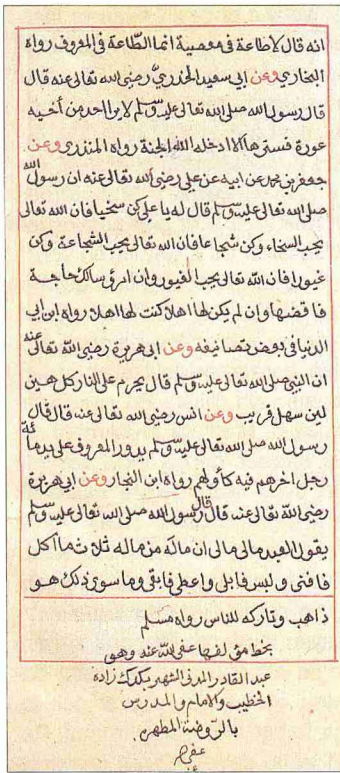 انه قال لاطاعة فى معصية انما الطّاعة فى المعروف رواه
البخارى وعن ابى سعيد الخدرىّ رضى الله تعالى عنه قال
قال رسول الله صلى الله تعالى عليه وسلم لايرا احد من أخيه
عورة فسترها الا ادخله الله الجنة رواه المنذرى وعن
جعفر بن محمد عن ابيه عن على رضى الله تعالى عنه ان رسول الله
صلى الله تعالى عليه وسلم قال له يا على كن سخيا فان الله تعالى
يحب السخاء وكن شجاعا فان الله تعالى يحب الشجاعة وكن
غيورا فان الله تعالى يحب الغيور وان امرؤ سالك حاجة
فاقضها وان لم يكن لها اهلا كنت لها اهلا رواه ابن ابى
الدنيا فى بعض تصانيفه وعن ابى هريرة رضى الله تعالى عنه
ان النبى صلى الله تعالى عليه وسلم قال يحرم على النار كل هين
لين سهل قريب وعن انس رضى الله تعالى عنه قال قال
رسول الله صلى الله تعالى عليه وسلم يدور المعروف على يد مائة
رجل اخرهم فيه كأولهم رواه ابن النجار وعن ابى هريرة
رضى الله تعالى عنه قال قال رسول الله صلى الله تعالى عليه وسلم
يقول العبد مالى مالى ان ماله من ماله ثلاث ما اكل
فافنى و لبس فابلى و اعطى فابقى وما سوى ذلك هو
ذاهب وتاركه للناس رواه مسلم
بخط مؤلفها عفى الله عنه وهو
عبد القادر المدنى الشهير بكدك زاده
الخطيب والامام والمدرس
بالروضة المطهرة
عفى عنه